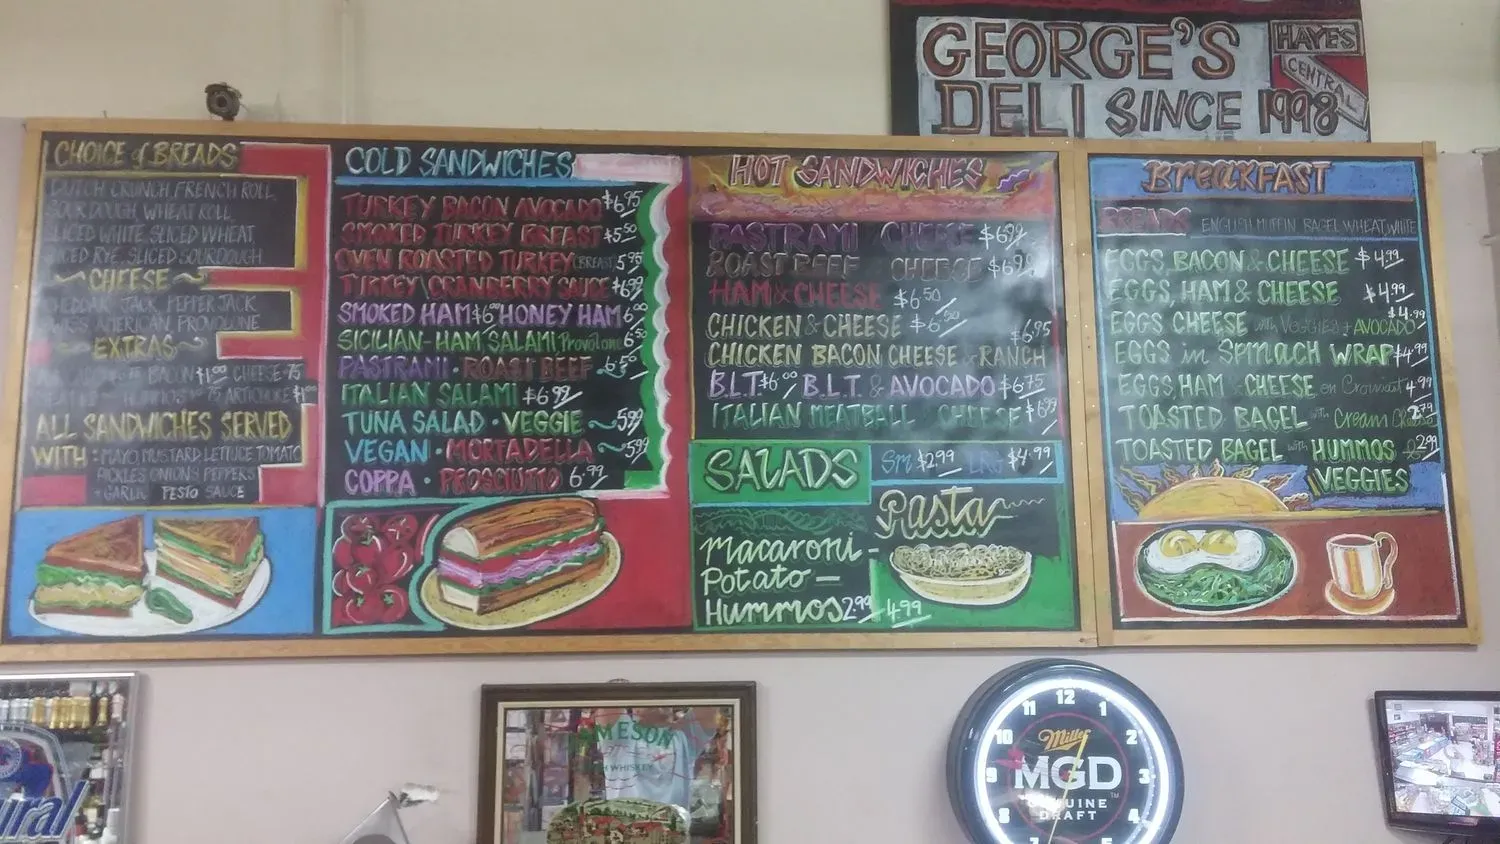 GEORGE'S
DELI SINCE 1998
HAYES
CENTRAL
CHOICE of BREADS
DUTCH CRUNCH, FRENCH ROLL,
SOURDOUGH, WHEAT ROLL,
SLICED WHITE, SLICED WHEAT
SLICED RYE, SLICED SOURDOUGH
~CHEESE~
CHEDDAR, JACK, PEPPER JACK,
SWISS AMERICAN, PROVOLONE
EXTRAS~
BACON $1.00 CHEESE .75
HUMMOS .75 ARTICHOKE $1.00
ALL SANDWICHES SERVED
WITH: MAYO, MUSTARD, LETTUCE, TOMATO
PICKLES ONIONS PEPPERS
+ GARLIC PESTO SAUCE
COLD SANDWICHES
TURKEY BACON AVOCADO $6.95
SMOKED TURKEY BREAST $5.50
OVEN ROASTED TURKEY (BREAST) 5.95
TURKEY CRANBERRY SAUCE $6.99
SMOKED HAM $6.00 HONEY HAM 6.00
SICILIAN-HAM SALAMI Provolone 6.50
PASTRAMI · ROAST BEEF - 6.50
ITALIAN SALAMI $6.99
TUNA SALAD · VEGGIE ~5.99
VEGAN · MORTADELLA ~5.99
COPPA · PROSCIUTTO 6.99
HOT SANDWICHES
PASTRAMI CHEESE $6.99
ROAST BEEF CHEESE $6.99
HAM & CHEESE $6.50
CHICKEN & CHEESE $6.50
CHICKEN BACON CHEESE RANCH $6.95
B.L.T. $6.00 B.L.T. & AVOCADO $6.75
ITALIAN MEATBALL CHEESE $6.99
SALADS Sm $2.99 LRG $4.99
Pasta
Macaroni -
Potato -
Hummos 2.99 4.99
BREAKFAST
BREADS ENGLISH MUFFIN BAGEL WHEAT, WHITE
EGGS, BACON & CHEESE $4.99
EGGS, HAM & CHEESE $4.99
EGGS CHEESE with Veggies + AVOCADO $4.99
EGGS in SPINACH WRAP $4.99
EGGS, HAM CHEESE on Croissant 4.99
TOASTED BAGEL with Cream Cheese 2.79
TOASTED BAGEL with HUMMOS 2.99
VEGGIES
JAMESON
WHISKEY
12
1
2
3
4
8
9
10
11
Miller
MGD
GENUINE
DRAFT